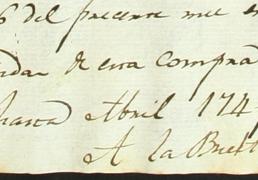 6 del presente mes e
dar de esta Compra
hasta Abril 174
A la Bue